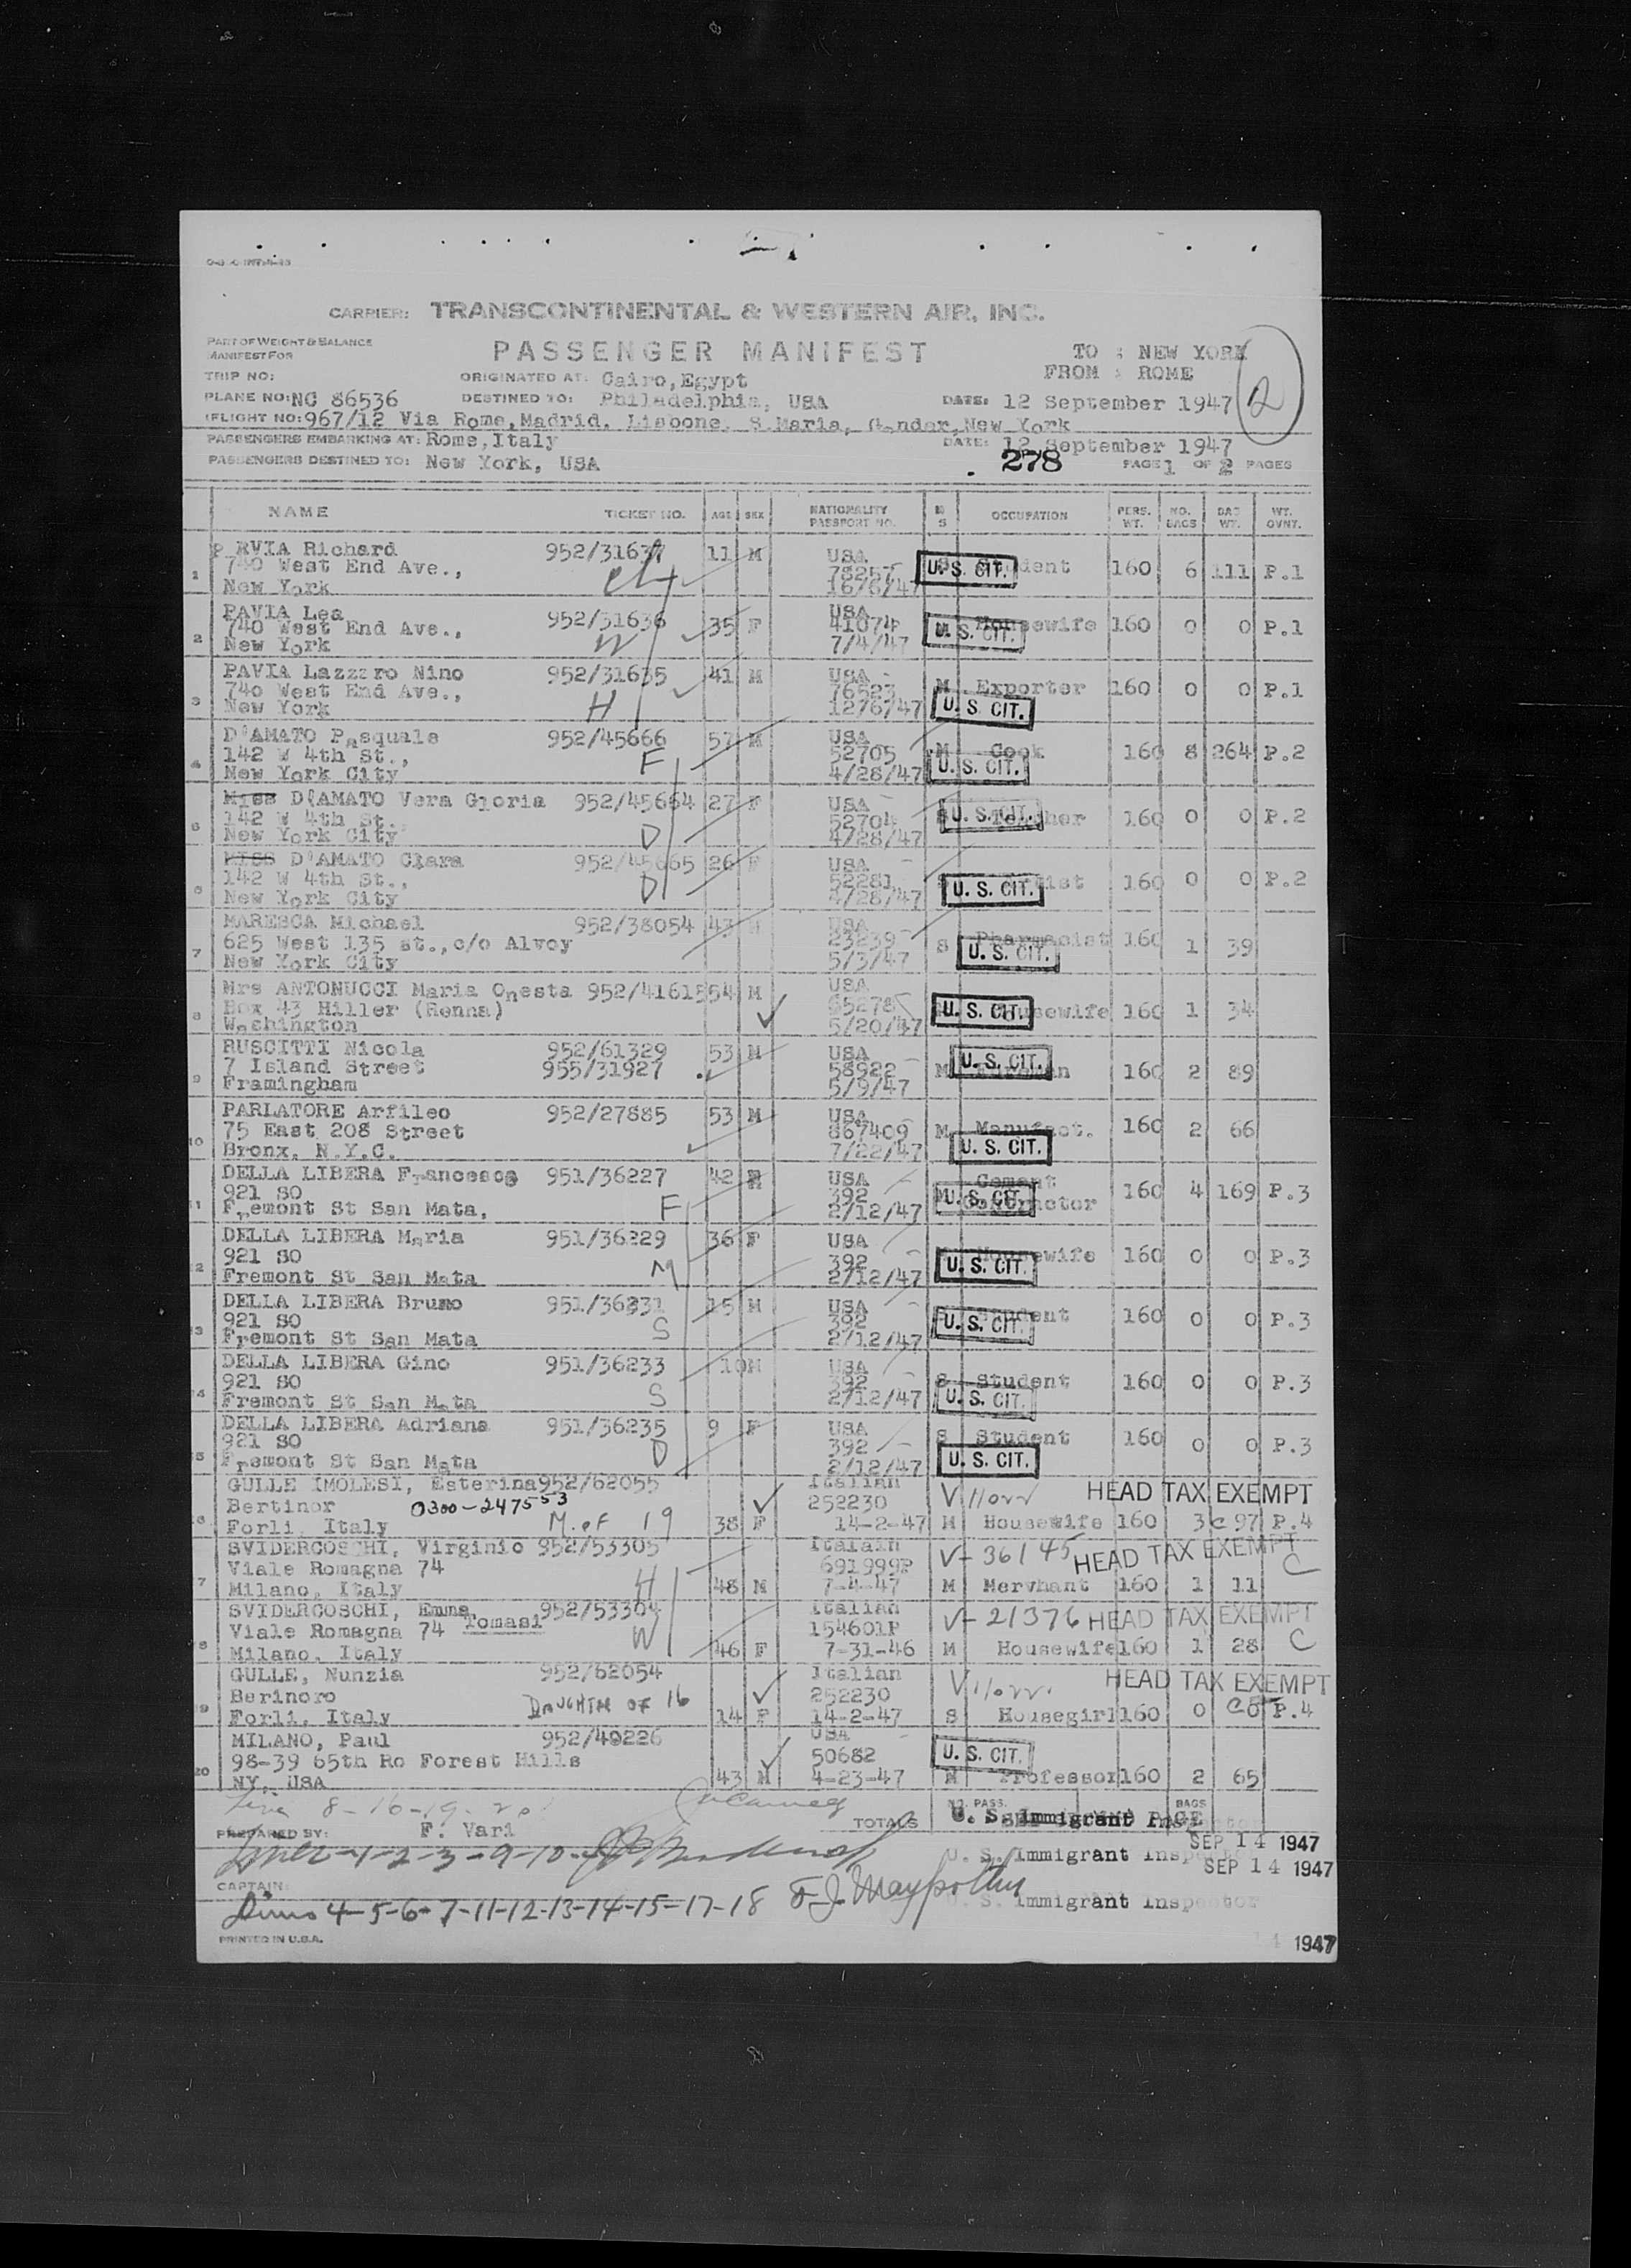 CARRIER: TRANSCONTINENTAL & WESTERN AIR, INC.
PART OF WEIGHT & BALANCE
MANIFEST FOR
PASSENGER MANIFEST
TO : NEW YORK
FROM : ROME
2
TRIP NO:
ORIGINATED AT: Cairo,Egypt
PLANE NO: NC 86536
DESTINED TO: Philadelphia, USA
DATE: 12 September 1947
FLIGHT NO: 967/12 Via Rome,Madrid, Lisbone, S.Maria, Gander,New York
PASSENGERS EMBARKING AT: Rome,Italy
DATE: 12 September 1947
PASSENGERS DESTINED TO: New York, USA
278
PAGE 1 OF 2 PAGES
NAME TICKET NO. AGE SEX NATIONALITY PASSPORT NO. M S OCCUPATION PERS. WT. NO. BAGS BAG WT. WT. OVNT.
RVIA Richard 952/31637 11 M USA U. S. CIT. 160 6 111 P.1
740 West End Ave., 78257
1 New York 16/6/47
PAVIA Lea 952/31636 35 F USA Housewife 160 0 0 P.1
740 West End Ave., 41074 U. S. CIT.
2 New York W 7/4/47
PAVIA Lazzaro Nino 952/31635 41 M USA M Exporter 160 0 0 P.1
740 West End Ave., 76523
3 New York H 1276/47 U. S. CIT.
D'AMATO Pasquale 952/45666 57 M USA M Cook 160 8 264 P.2
142 W 4th St., 52705 U. S. CIT.
4 New York City F 4/28/47
Miss D(AMATO Vera Gloria 952/45664 27 F USA U. S. CIT. Teacher 160 0 0 P.2
142 W 4th St. 52704
New York City D 4/28/47
Miss D'AMATO Clara 952/45665 26 F USA 160 0 0 P.2
142 W 4th St., 52281 U. S. CIT.
6 New York City D 4/28/47
MARESCA Michael 952/38054 43 M USA S Pharmacist 160 1 39
625 West 135 st.,c/o Alvoy 23239 U. S. CIT.
7 New York City 5/3/47
Mrs ANTONUCCI Maria Onesta 952/4161554 M USA Housewife 160 1 34
Box 43 Hiller (Renna) 65278 U. S. CIT.
8 Washington 5/20/47
RUSCITTI Nicola 952/61329 53 M USA U. S. CIT. M 160 2 89
7 Island Street 955/31927 58922
9 Framingham 5/9/47
PARLATORE Arfileo 952/27885 53 M USA M Manufact. 160 2 66
75 East 208 Street 867409 U. S. CIT.
10 Bronx, N.Y.C. 7/22/47
DELLA LIBERA Francesco 951/36227 42 USA Cement Contractor 160 4 169 P.3
921 SO 392 U. S. CIT.
Fremont St San Mata, F 2/12/47
DELLA LIBERA Maria 951/36229 36 F USA Housewife 160 0 0 P.3
921 SO 392 U. S. CIT.
Fremont St San Mata M 2/12/47
DELLA LIBERA Bruno 951/36231 15 M USA Student 160 0 0 P.3
921 SO 392 U. S. CIT.
Fremont St San Mata S 2/12/47
DELLA LIBERA Gino 951/36233 10 M USA S Student 160 0 0 P.3
921 SO 392
Fremont St San Mata S 2/12/47 U. S. CIT.
DELLA LIBERA Adriana 951/36235 9 F USA S Student 160 0 0 P.3
921 SO 392
Fremont St San Mata D 2/12/47 U. S. CIT.
GULLE IMOLESI, Esterina 952/62055 Italian HEAD TAX EXEMPT
Bertinor 0300-247553 252230
Forli, Italy M. of 19 38 F 14-2-47 M Housewife 160 3 C 97 P.4
SVIDERCOSCHI, Virginio 952/53305 Italain V-36145 HEAD TAX EXEMPT
Viale Romagna 74 691999P C
Milano, Italy H 48 M 7-4-47 M Mervhant 160 1 11
SVIDERCOSCHI, Emma 952/53304 Italian V-21376 HEAD TAX EXEMPT
Viale Romagna 74 Tomasi 154601P
Milano, Italy W 46 F 7-31-46 M Housewife 160 1 28 C
GULLE, Nunzia 952/62054 Italian HEAD TAX EXEMPT
Berinoro 252230
Forli, Italy DAUGHTER OF 16 14 F 14-2-47 S Housegirl 160 0 C 0 P.4
MILANO, Paul 952/49226 USA
98-39 65th Ro Forest Hills 50682 U. S. CIT.
20 NY, USA 43 M 4-23-47 M Professor 160 2 65
8-16-19-20
PREPARED BY: F. Vari
TOTALS NO. PASS. BAGS
U. S. Immigrant
SEP 14 1947
1-2-3-9-10
U. S. Immigrant Inspector
SEP 14 1947
CAPTAIN:
4-5-6-7-11-12-13-14-15-17-18
U. S. Immigrant Inspector
PRINTED IN U.S.A.
4 1947